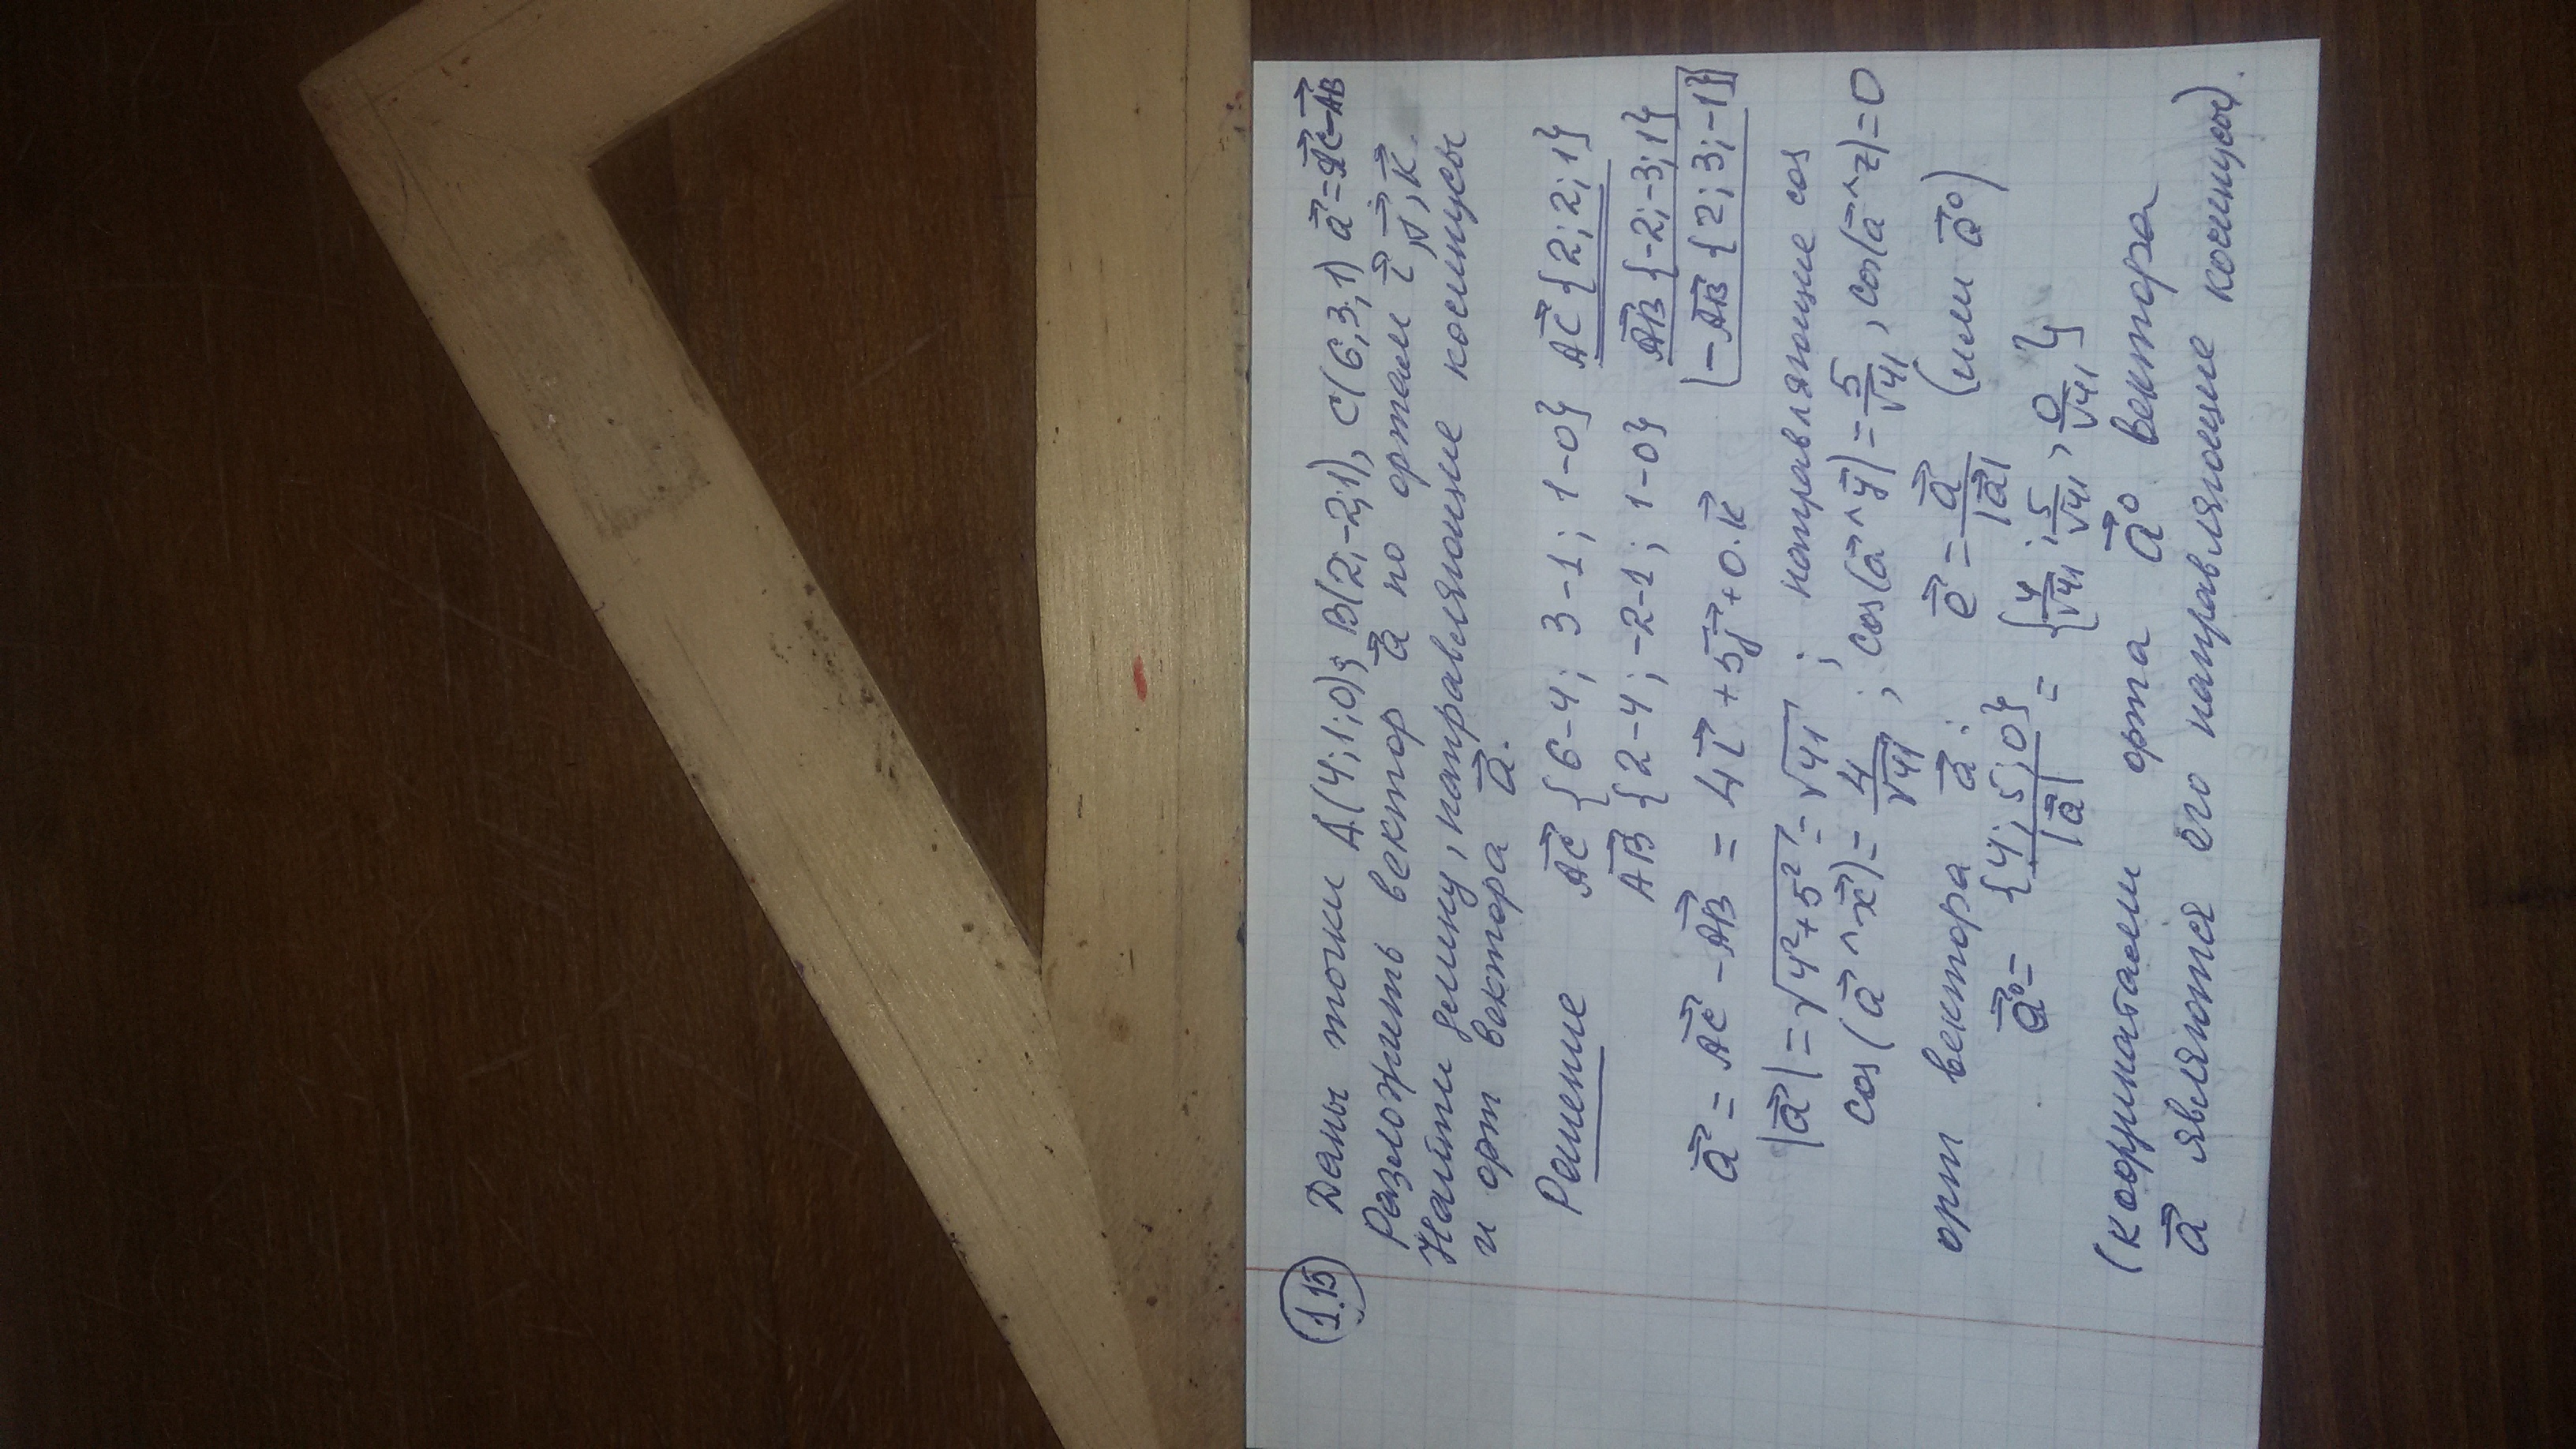 1.15 Даны точки A(4;1;0); B(2;-2;1), C(6;3;1) a⃗=AC⃗-AB⃗
Разложить вектор a⃗ по ортам i⃗, j⃗, k⃗.
Найти длину, направляющие косинусы
и орт вектора a⃗.
Решение AC⃗ {6-4; 3-1; 1-0} AC⃗ {2; 2; 1}
AB⃗ {2-4; -2-1; 1-0} AB⃗ {-2; -3; 1}
-AB⃗ {2; 3; -1}
a⃗ = AC⃗ - AB⃗ = 4i⃗ + 5j⃗ + 0·k⃗
|a⃗| = √(4²+5²) = √41 ; направляющие cos
cos(a⃗^x⃗) = 4/√41 ; cos(a⃗^y⃗) = 5/√41, cos(a⃗^z) = 0
орт вектора a⃗: e⃗ = a⃗/|a⃗| (или a⃗⁰)
a⃗⁰ = {4; 5; 0}/|a⃗| = {4/√41; 5/√41, 0/√41}
(координатами орта a⃗⁰ вектора
a⃗ являются его направляющие косинусы).